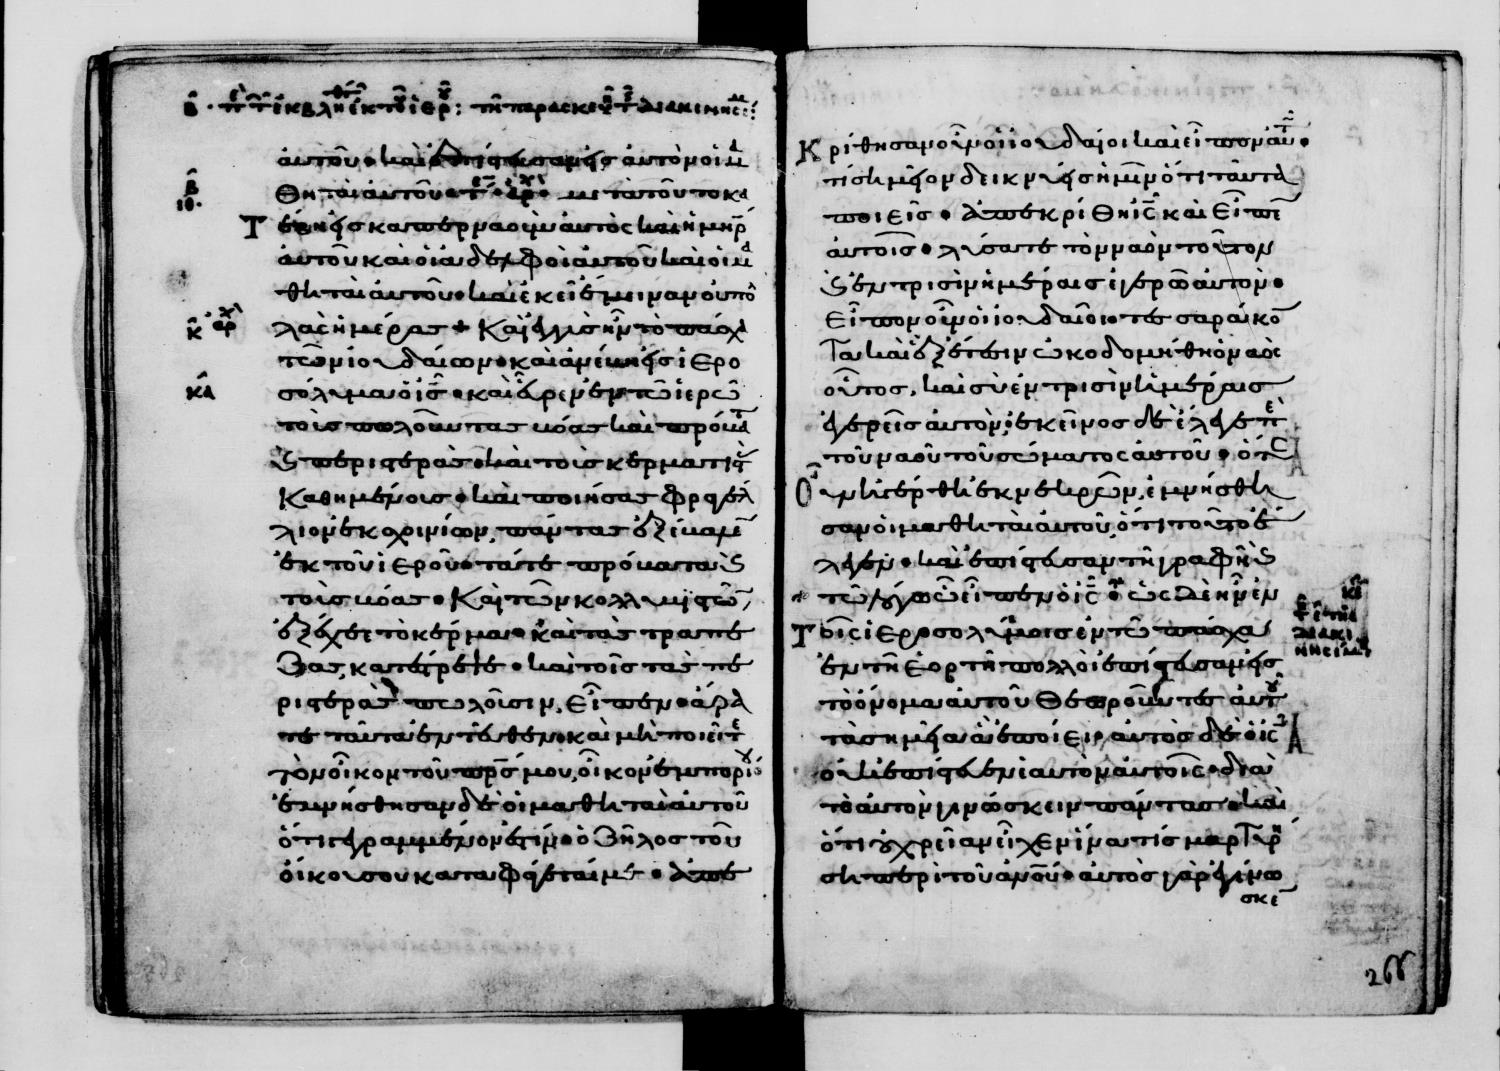 αὐτοῦ· καὶ ἐπίστευσαν εἰς αὐτὸν οἱ μα
θηταὶ αὐτοῦ· μετὰ τοῦτο κα
τέβη εἰς καπερναοὺμ αὐτὸς καὶ ἡ μηρ
αὐτοῦ καὶ οἱ ἀδελφοὶ αὐτοῦ καὶ οἱ μα
θηταὶ αὐτοῦ· καὶ ἐκεῖ ἔμειναν οὐ πολ
λὰς ἡμέρας + Καὶ ἐγγὺς ἦν τὸ πάσχα
τῶν ἰουδαίων· καὶ ἀνέβη εἰς ἱερο
σόλυμα ὁ ις· καὶ εὗρεν ἐν τῶ ἱερῶ
τοὺς πωλοῦντας βόας καὶ πρόβατα
καὶ περιστεράς· καὶ τοὺς κερματιστὰς
καθημένους· καὶ ποιήσας φραγέλ
λιον ἐκ σχοινίων, πάντας ἐξέβαλεν
ἐκ τοῦ ἱεροῦ· τά τε πρόβατα καὶ
τοὺς βόας· Καὶ τῶν κολλυβιστῶν
ἐξέχεε τὸ κέρμα· καὶ τὰς τραπέ
ζας κατέστρεψε· καὶ τοῖς τὰς πε
ριστερὰς πωλοῦσιν, εἶπεν· ἄρα
τε ταῦτα ἐντεῦθεν· καὶ μὴ ποιεῖτε
τὸν οἶκον τοῦ πρς μου, οἶκον ἐμπορίου
ἐμνήσθησαν δὲ οἱ μαθηταὶ αὐτοῦ
ὅτι γεγραμμένον ἐστίν· ὁ ζῆλος τοῦ
οἴκου σου καταφάγεταί με· ἀπε
κρίθησαν οὖν οἱ ἰουδαῖοι καὶ εἶπον αὐτῶ·
τί σημεῖον δεικνύεις ἡμῖν ὅτι ταῦτα
ποιεῖς· ἀπεκρίθη ις καὶ εἶπεν
αὐτοῖς· λύσατε τὸν ναὸν τοῦτον
καὶ ἐν τρισὶν ἡμέραις ἐγερῶ αὐτόν·
εἶπον οὖν οἱ ἰουδαῖοι· τεσσαράκον
τα καὶ ἓξ ἔτεσιν ὠκοδομήθη ὁ ναὸς
οὗτος, καὶ σὺ ἐν τρισὶν ἡμέραις
ἐγερεῖς αὐτόν; ἐκεῖνος δὲ ἔλεγε περὶ
τοῦ ναοῦ τοῦ σώματος αὐτοῦ· ὅτε
οὖν ἠγέρθη ἐκ νεκρῶν, ἐμνήσθη
σαν οἱ μαθηταὶ αὐτοῦ, ὅτι τοῦτο ἔ
λεγεν· καὶ ἐπίστευσαν τῆ γραφῆ καὶ
τῶ λόγω ὧ εἶπεν ὁ ις· ὡς δὲ ἦν ἐν
τοῖς ἱεροσολύμοις ἐν τῶ πάσχα
ἐν τῆ ἑορτῆ πολλοὶ ἐπίστευσαν εἰς
τὸ ὄνομα αὐτοῦ θεωροῦντες αὐτοῦ
τὰ σημεῖα ἃ ἐποίει· αὐτὸς δὲ ὁ ις
οὐκ ἐπίστευεν ἑαυτὸν αὐτοῖς· διὰ
τὸ αὐτὸν γινώσκειν πάντας· καὶ
ὅτι οὐ χρείαν εἶχεν ἵνα τίς μαρτυρή
ση περὶ τοῦ ἀνου· αὐτὸς γὰρ ἐγίνω
σκε
266